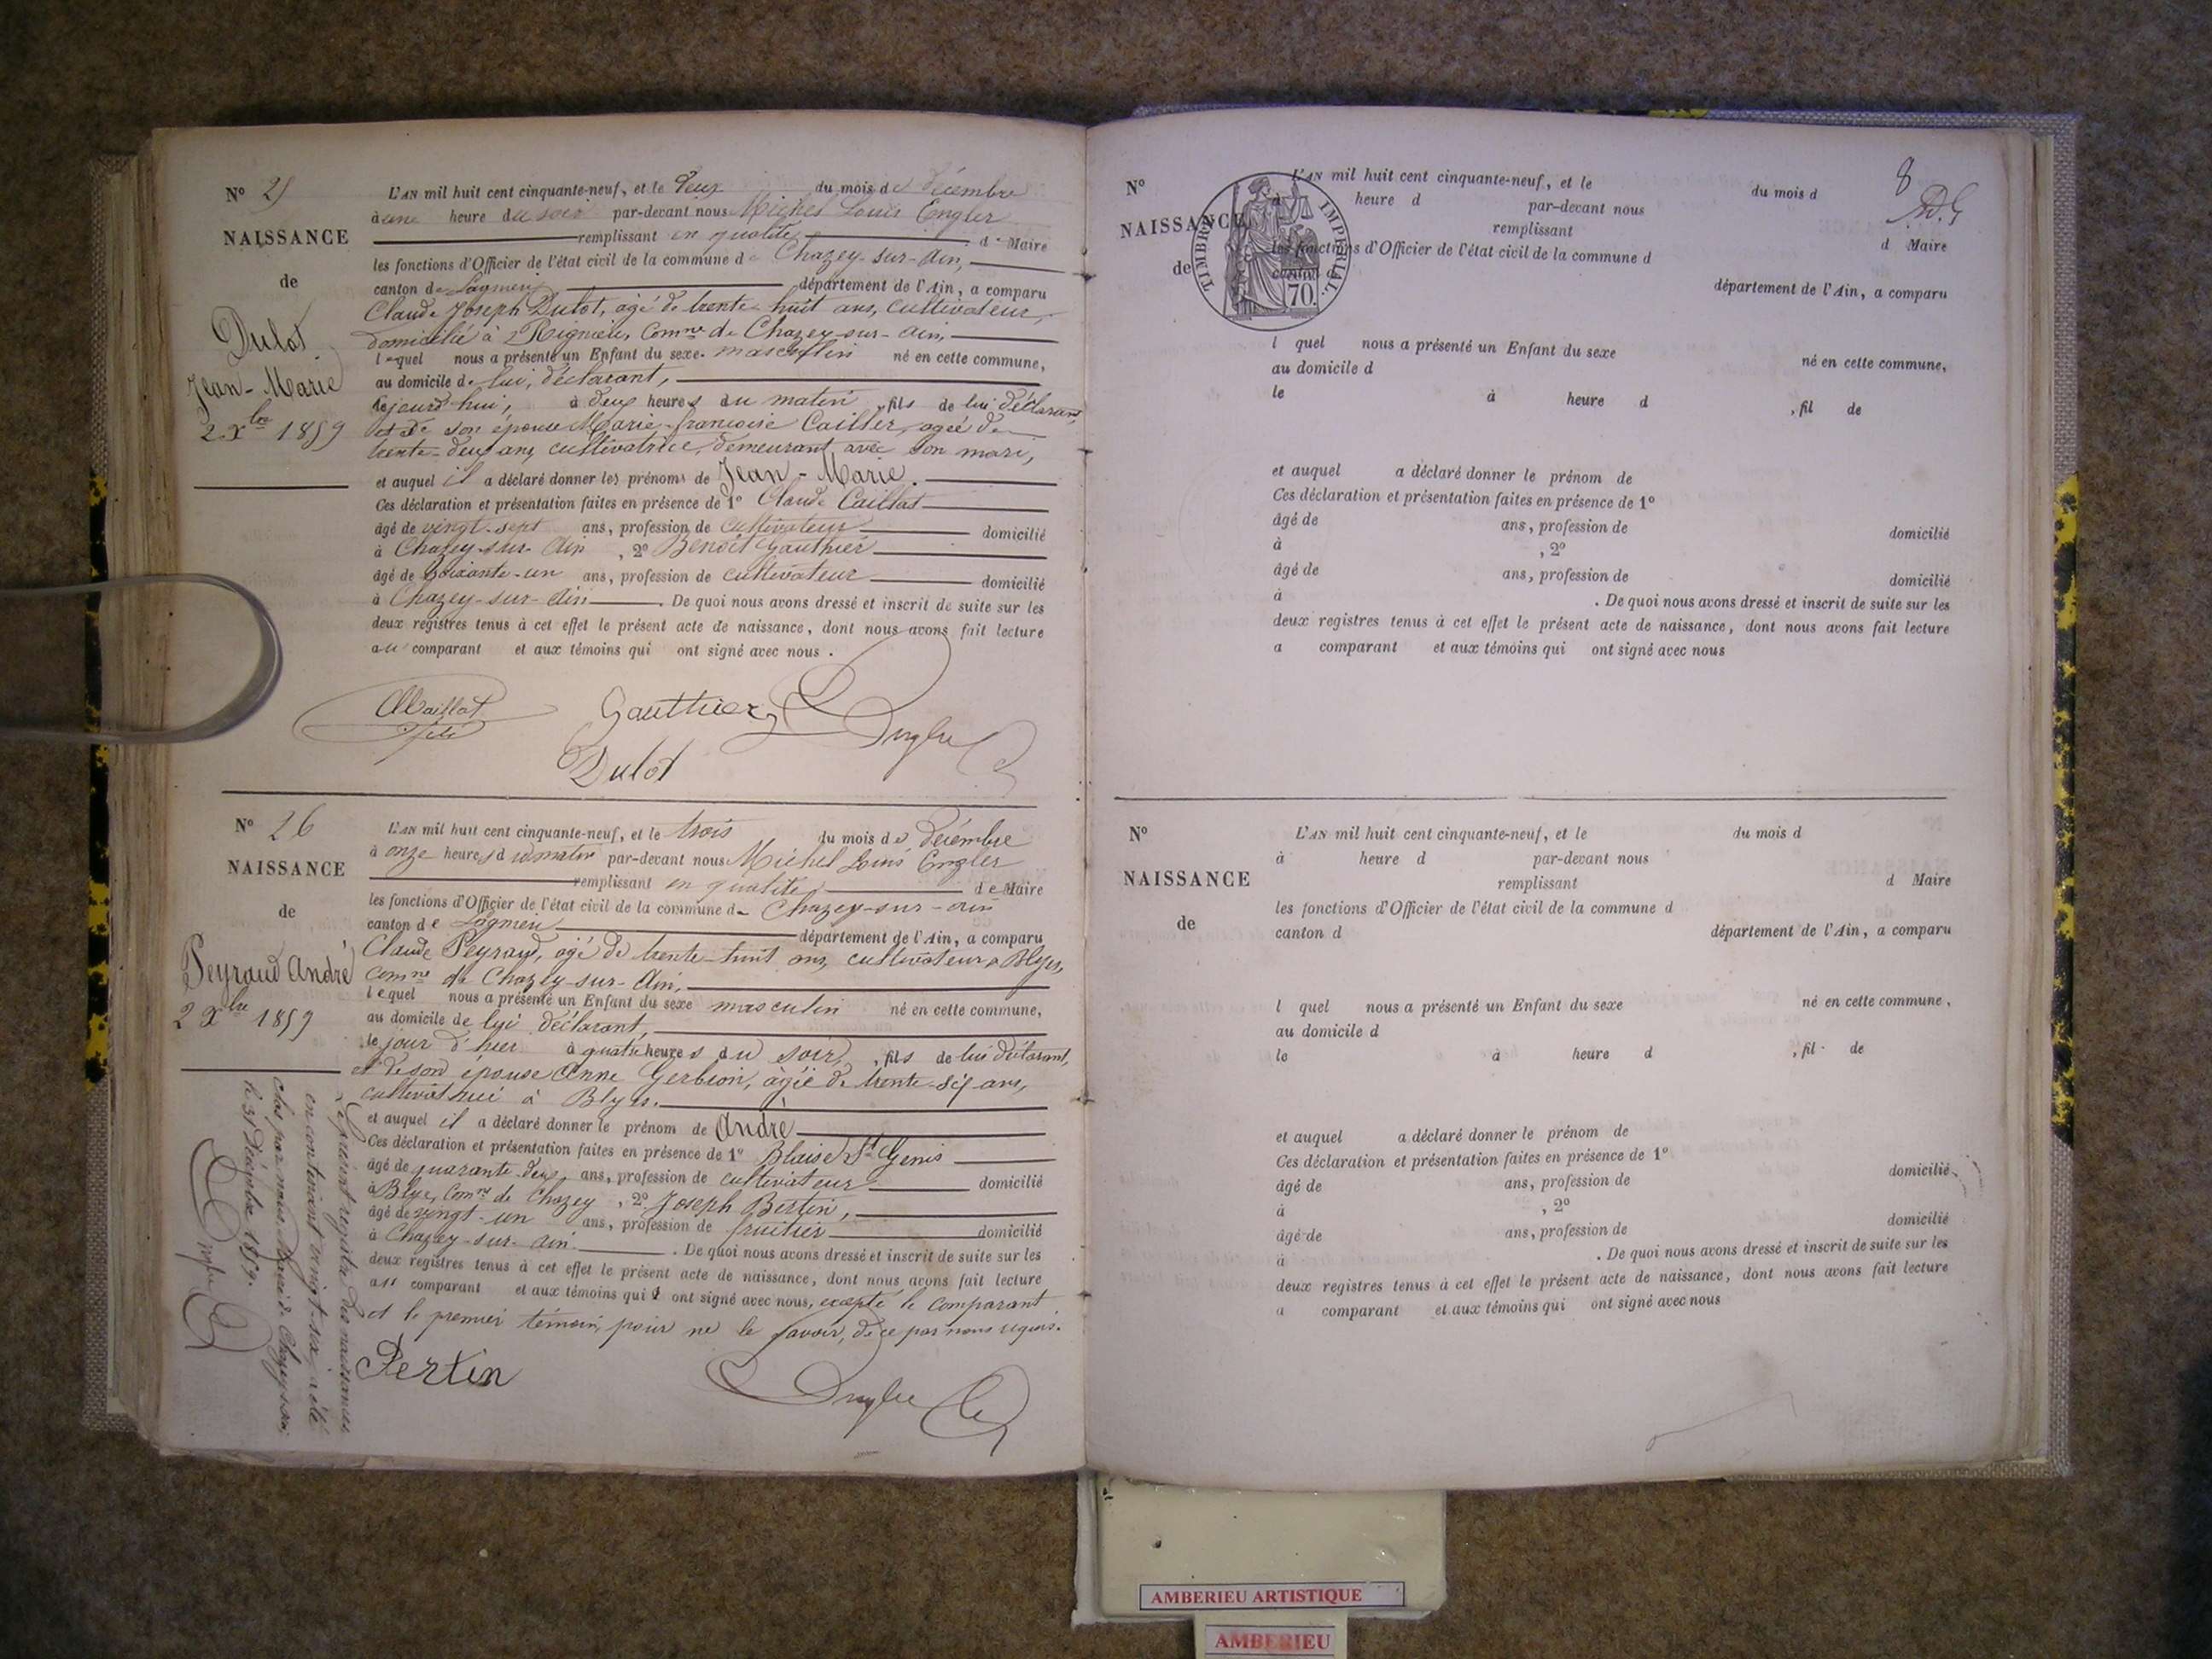 N° 25
NAISSANCE
de
Dulot
Jean-Marie
2 Xbre 1859
L'AN mil huit cent cinquante-neuf, et le deux du mois de décembre
à une heure du soir par-devant nous Michel Louis Engler
remplissant en qualité de Maire
les fonctions d'Officier de l'état civil de la commune de Chazey-sur-Ain,
canton de Lagnieu département de l'Ain, a comparu
Claude Joseph Dulot, agé de trente-huit ans, cultivateur,
domicilié à Rignieu, Comne de Chazey-sur-Ain,
lequel nous a présenté un Enfant du sexe masculin né en cette commune,
au domicile de lui, déclarant,
le jourd'hui, à deux heures du matin, fils de lui déclarant,
et de son épouse Marie-françoise Caillet, agée de
trente-deux ans, cultivatrice, demeurant avec son mari,
et auquel il a déclaré donner les prénoms de Jean-Marie.
Ces déclaration et présentation faites en présence de 1° Claude Caillat
âgé de vingt-sept ans, profession de cultivateur domicilié
à Chazey-sur-Ain, 2° Benoit Gauthier
âgé de Soixante-un ans, profession de cultivateur domicilié
à Chazey-sur-Ain. De quoi nous avons dressé et inscrit de suite sur les
deux registres tenus à cet effet le présent acte de naissance, dont nous avons fait lecture
au comparant et aux témoins qui ont signé avec nous.
Caillat
Gauthier
Engler
Dulot
N° 26
NAISSANCE
de
Peyraud André
2 Xbre 1859
L'AN mil huit cent cinquante-neuf, et le trois du mois de décembre
à onze heures du matin par-devant nous Michel Louis Engler
remplissant en qualité de Maire
les fonctions d'Officier de l'état civil de la commune de Chazey-sur-ain
canton de Lagnieu département de l'Ain, a comparu
Claude Peyraud, agé de trente-huit ans, cultivateur à Blyes,
comne de Chazey-sur-Ain,
lequel nous a présenté un Enfant du sexe masculin né en cette commune,
au domicile de lui déclarant,
le jour d'hier à quatre heures du soir, fils de lui déclarant,
et de son épouse Anne Gerbion, âgée de trente-six ans,
cultivatrice à Blyes.
et auquel il a déclaré donner le prénom de André
Ces déclaration et présentation faites en présence de 1° Blaise St Genis
âgé de quarante-deux ans, profession de cultivateur domicilié
à Blye, Comne de Chazey, 2° Joseph Bertin,
âgé de vingt-un ans, profession de fruitier domicilié
à Chazey-sur-ain. De quoi nous avons dressé et inscrit de suite sur les
deux registres tenus à cet effet le présent acte de naissance, dont nous avons fait lecture
au comparant et aux témoins qui ont signé avec nous, excepté le comparant
et le premier témoin, pour ne le savoir, de ce par nous requis.
Bertin
Engler
Le présent registre des naissances
en contenant vingt-six, a été
clos par nous, Maire de Chazey-s-ain,
le 31 Décembre 1859.
Engler
8
N°
NAISSANCE
de
TIMBRE IMPERIAL.
70.
L'AN mil huit cent cinquante-neuf, et le du mois d
à heure d par-devant nous
remplissant d Maire
les fonctions d'Officier de l'état civil de la commune d
canton d département de l'Ain, a comparu
l quel nous a présenté un Enfant du sexe né en cette commune,
au domicile d
le à heure d , fil de
et auquel a déclaré donner le prénom de
Ces déclaration et présentation faites en présence de 1°
âgé de ans, profession de domicilié
à , 2°
âgé de ans, profession de domicilié
à . De quoi nous avons dressé et inscrit de suite sur les
deux registres tenus à cet effet le présent acte de naissance, dont nous avons fait lecture
a comparant et aux témoins qui ont signé avec nous
N°
NAISSANCE
de
L'AN mil huit cent cinquante-neuf, et le du mois d
à heure d par-devant nous
remplissant d Maire
les fonctions d'Officier de l'état civil de la commune d
canton d département de l'Ain, a comparu
l quel nous a présenté un Enfant du sexe né en cette commune,
au domicile d
le à heure d , fil de
et auquel a déclaré donner le prénom de
Ces déclaration et présentation faites en présence de 1°
âgé de ans, profession de domicilié
à , 2°
âgé de ans, profession de domicilié
à . De quoi nous avons dressé et inscrit de suite sur les
deux registres tenus à cet effet le présent acte de naissance, dont nous avons fait lecture
a comparant et aux témoins qui ont signé avec nous
AMBERIEU ARTISTIQUE
AMBERIEU